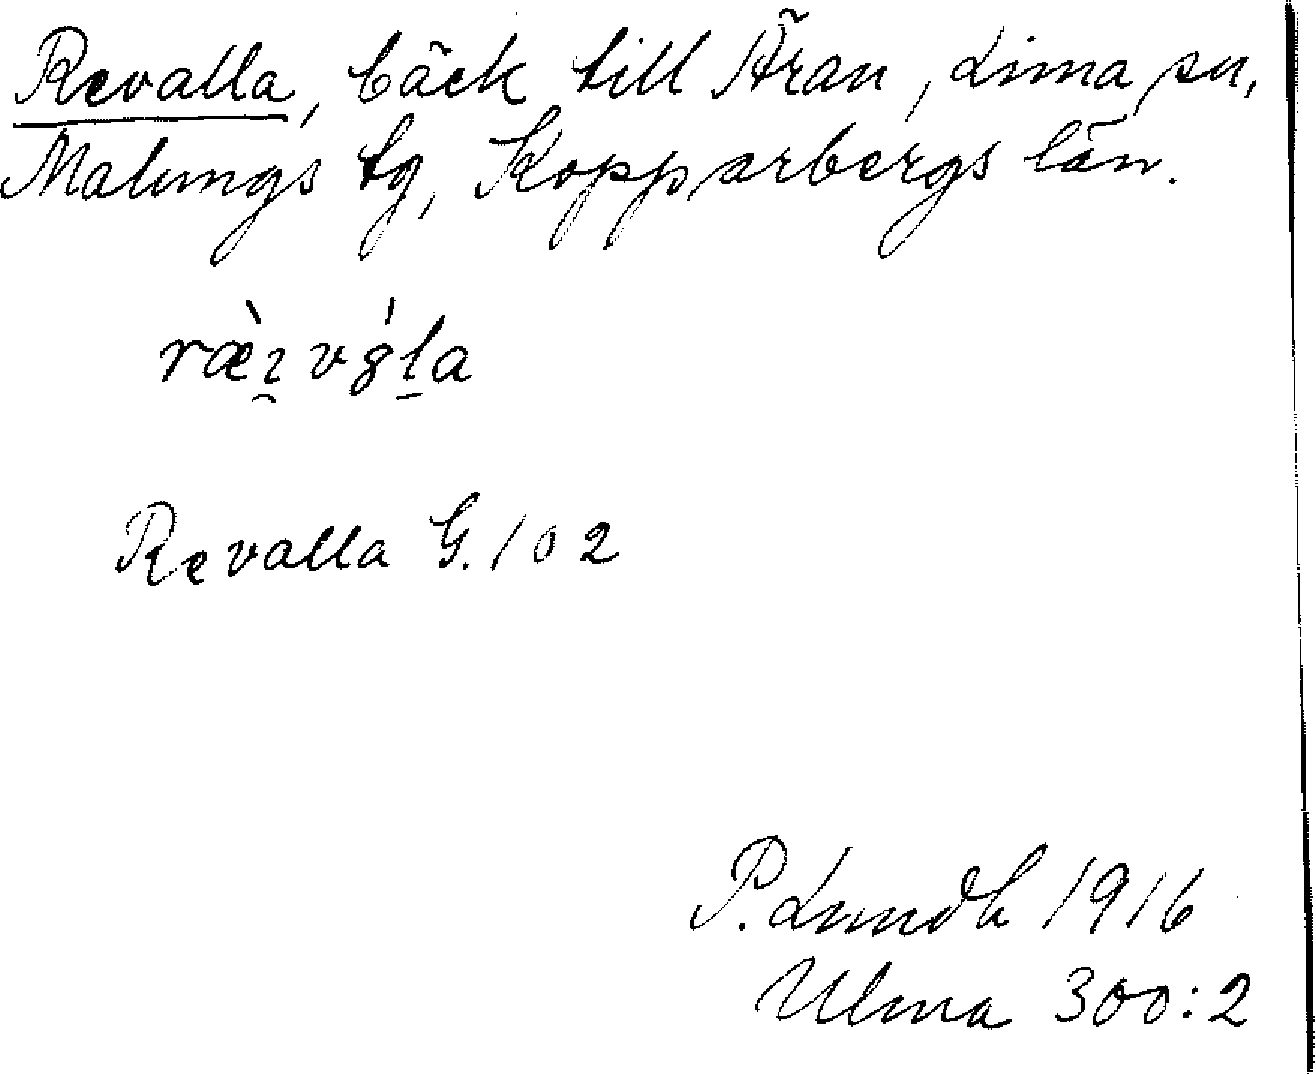 Revalla, bäck till Äran, Lima sn,
Malungs tg, Kopparbergs län.
Revalla G. 102
P. Lundh 1916
Ulma 300:2